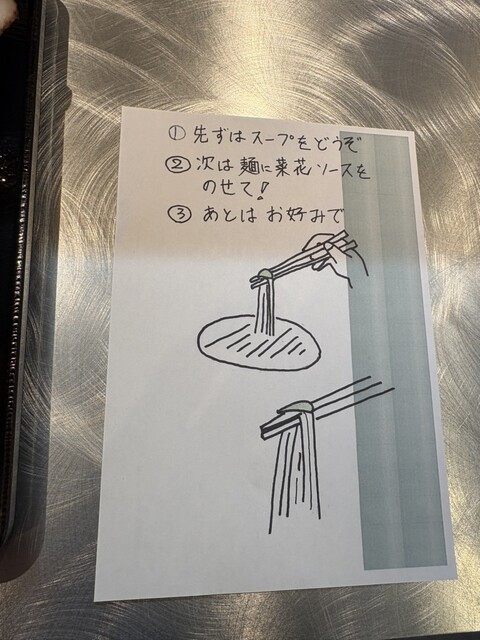 ① 先ずはスープをどうぞ
② 次は麺に菜花ソースを
のせて!
③ あとは お好みで